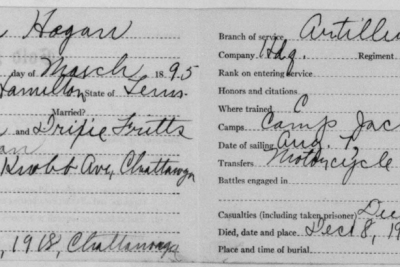 Hogan
day of March 1895
Hamilton State of Tenn.
Married?
and Drifie Frutts
Knobb Ave, Chattanooga
, 1918, Chattanooga
Branch of service Artille
Company Hdq. Regiment
Rank on entering service
Honors and citations
Where trained C
Camps Camp Jac
Date of sailing Aug. 7,
Transfers Motorcycle
Battles engaged in
Casualties (including taken prisoner) Die
Died, date and place. Dec 8, 19
Place and time of burial.